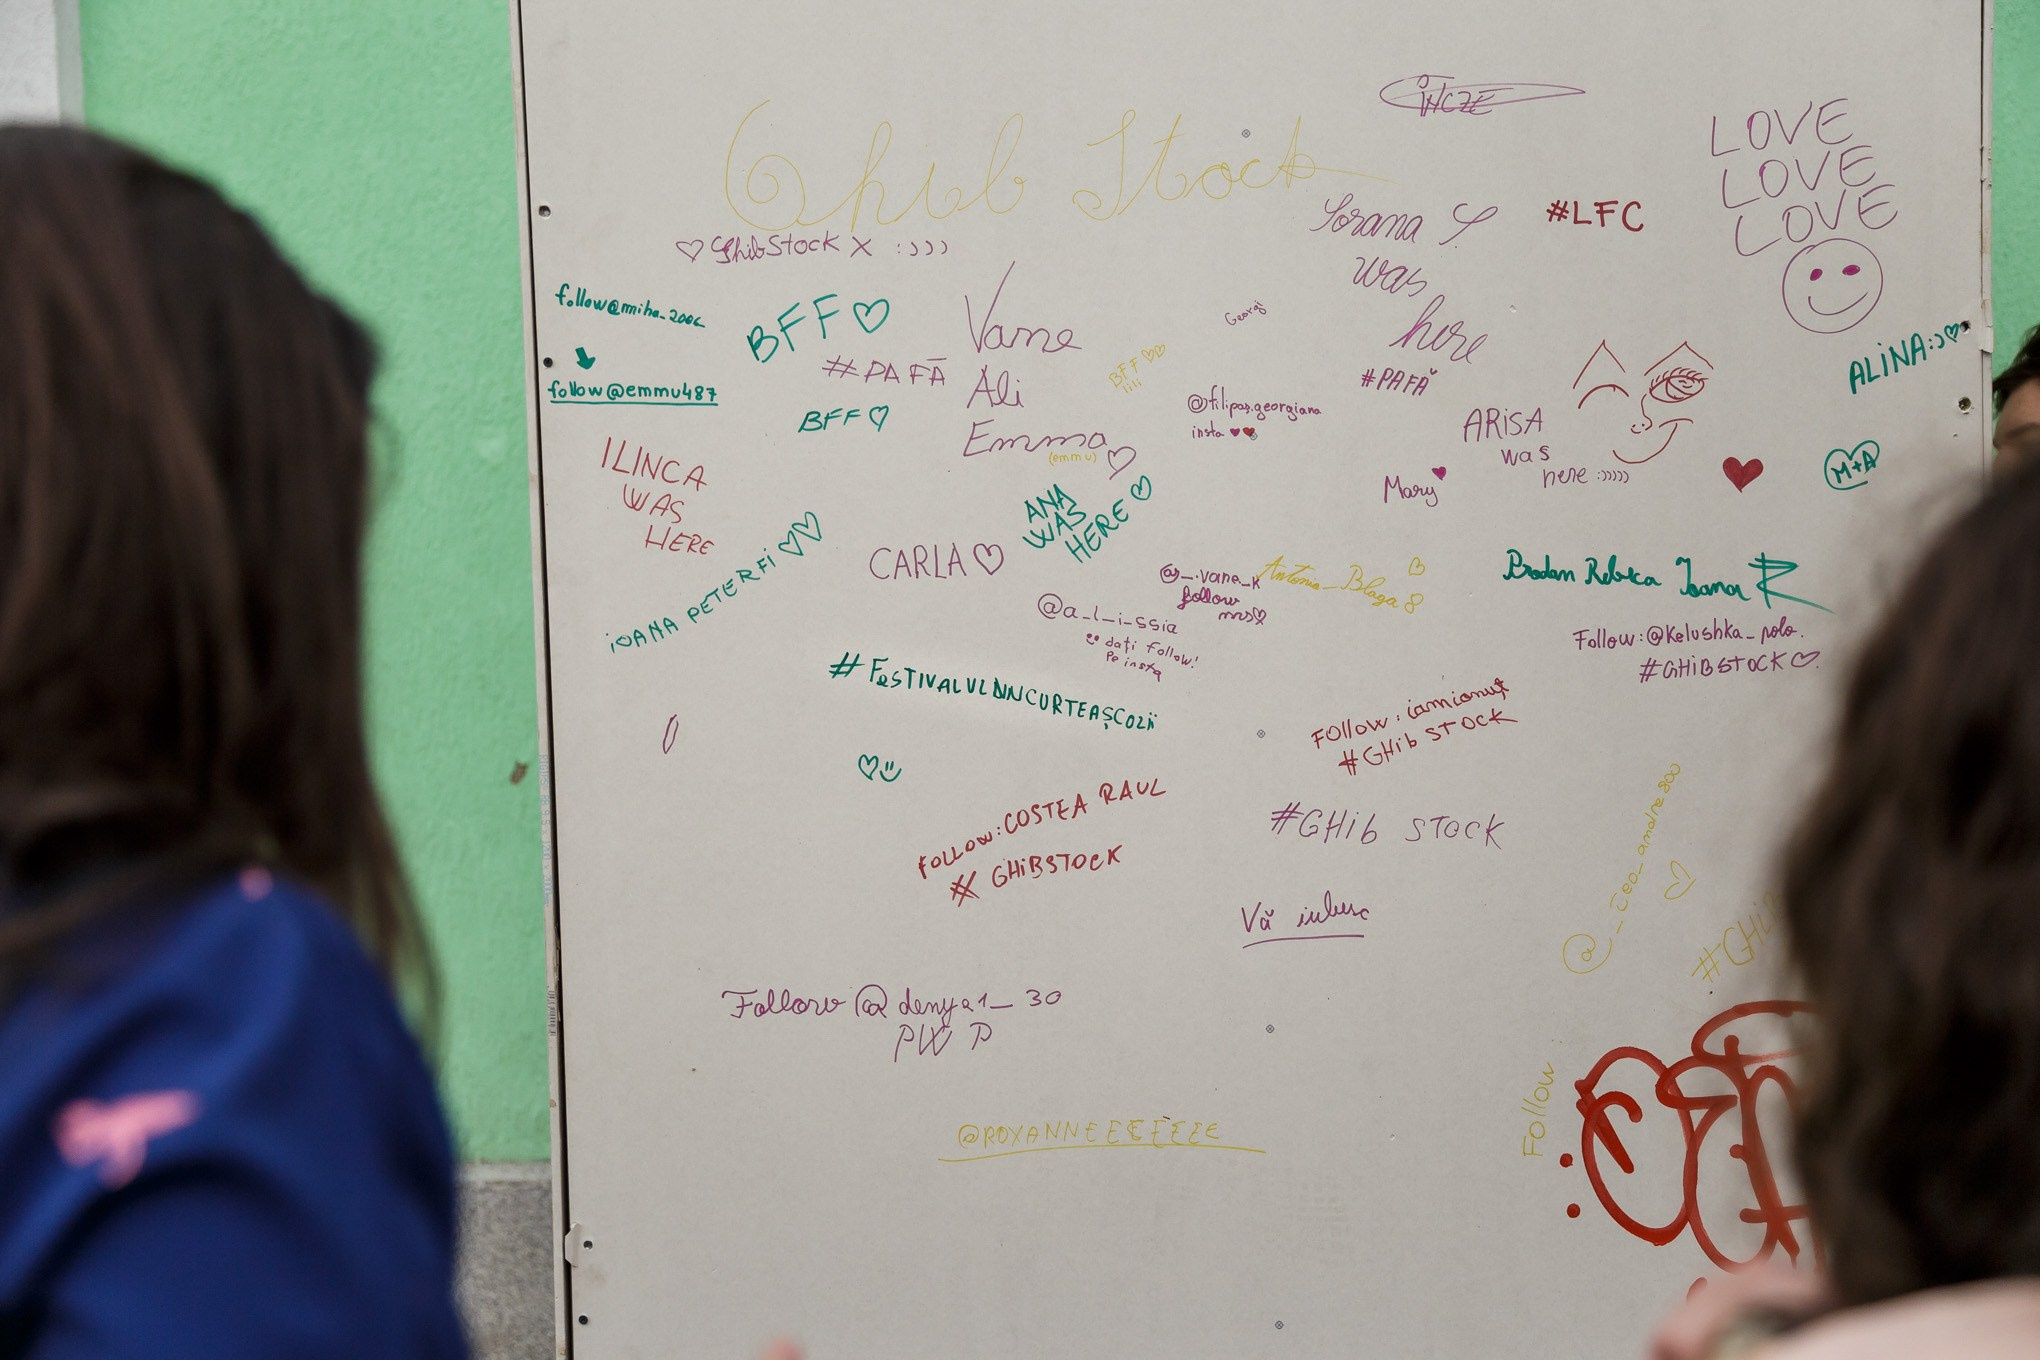 Ghib Stock
INCZE
LOVE
LOVE
LOVE
♡ GhibStock X :)))
Sorana S.
was
here
#LFC
follow@miha_2006
follow@emmu487
BFF ♡
#PAFĂ
BFF ♡
Vane
Ali
Emma ♡
(emmu)
Georgi
BFF ♡♡
!!!!
@filipas.georgiana
insta ♥♥
#PAFĂ
ARISA
was
here :)))))
ALINA:)♡
M+A
Mary ♥
ILINCA
WAS
HERE
IOANA PETERFI ♡♡
CARLA ♡
ANA
WAS
HERE ♡
@_.vane_k
follow
Antonia_Blaga 8
@a_l_i_ssia
dați follow!
pe insta
Rebeca Ioana R
Follow:@Kelushka_polo.
#GHIBSTOCK ♡.
#FESTIVALULDINCURTEAȘCOZII
FOLLOW: iamionuț
#GHib STOCK
FOLLOW: COSTEA RAUL
# GHIBSTOCK
#GHib STOCK
Vă iubesc
@_Teo_andrea800
#GHi
Follow @denya1_30
PW P
Follow:
@ROXANNEEEEEEE